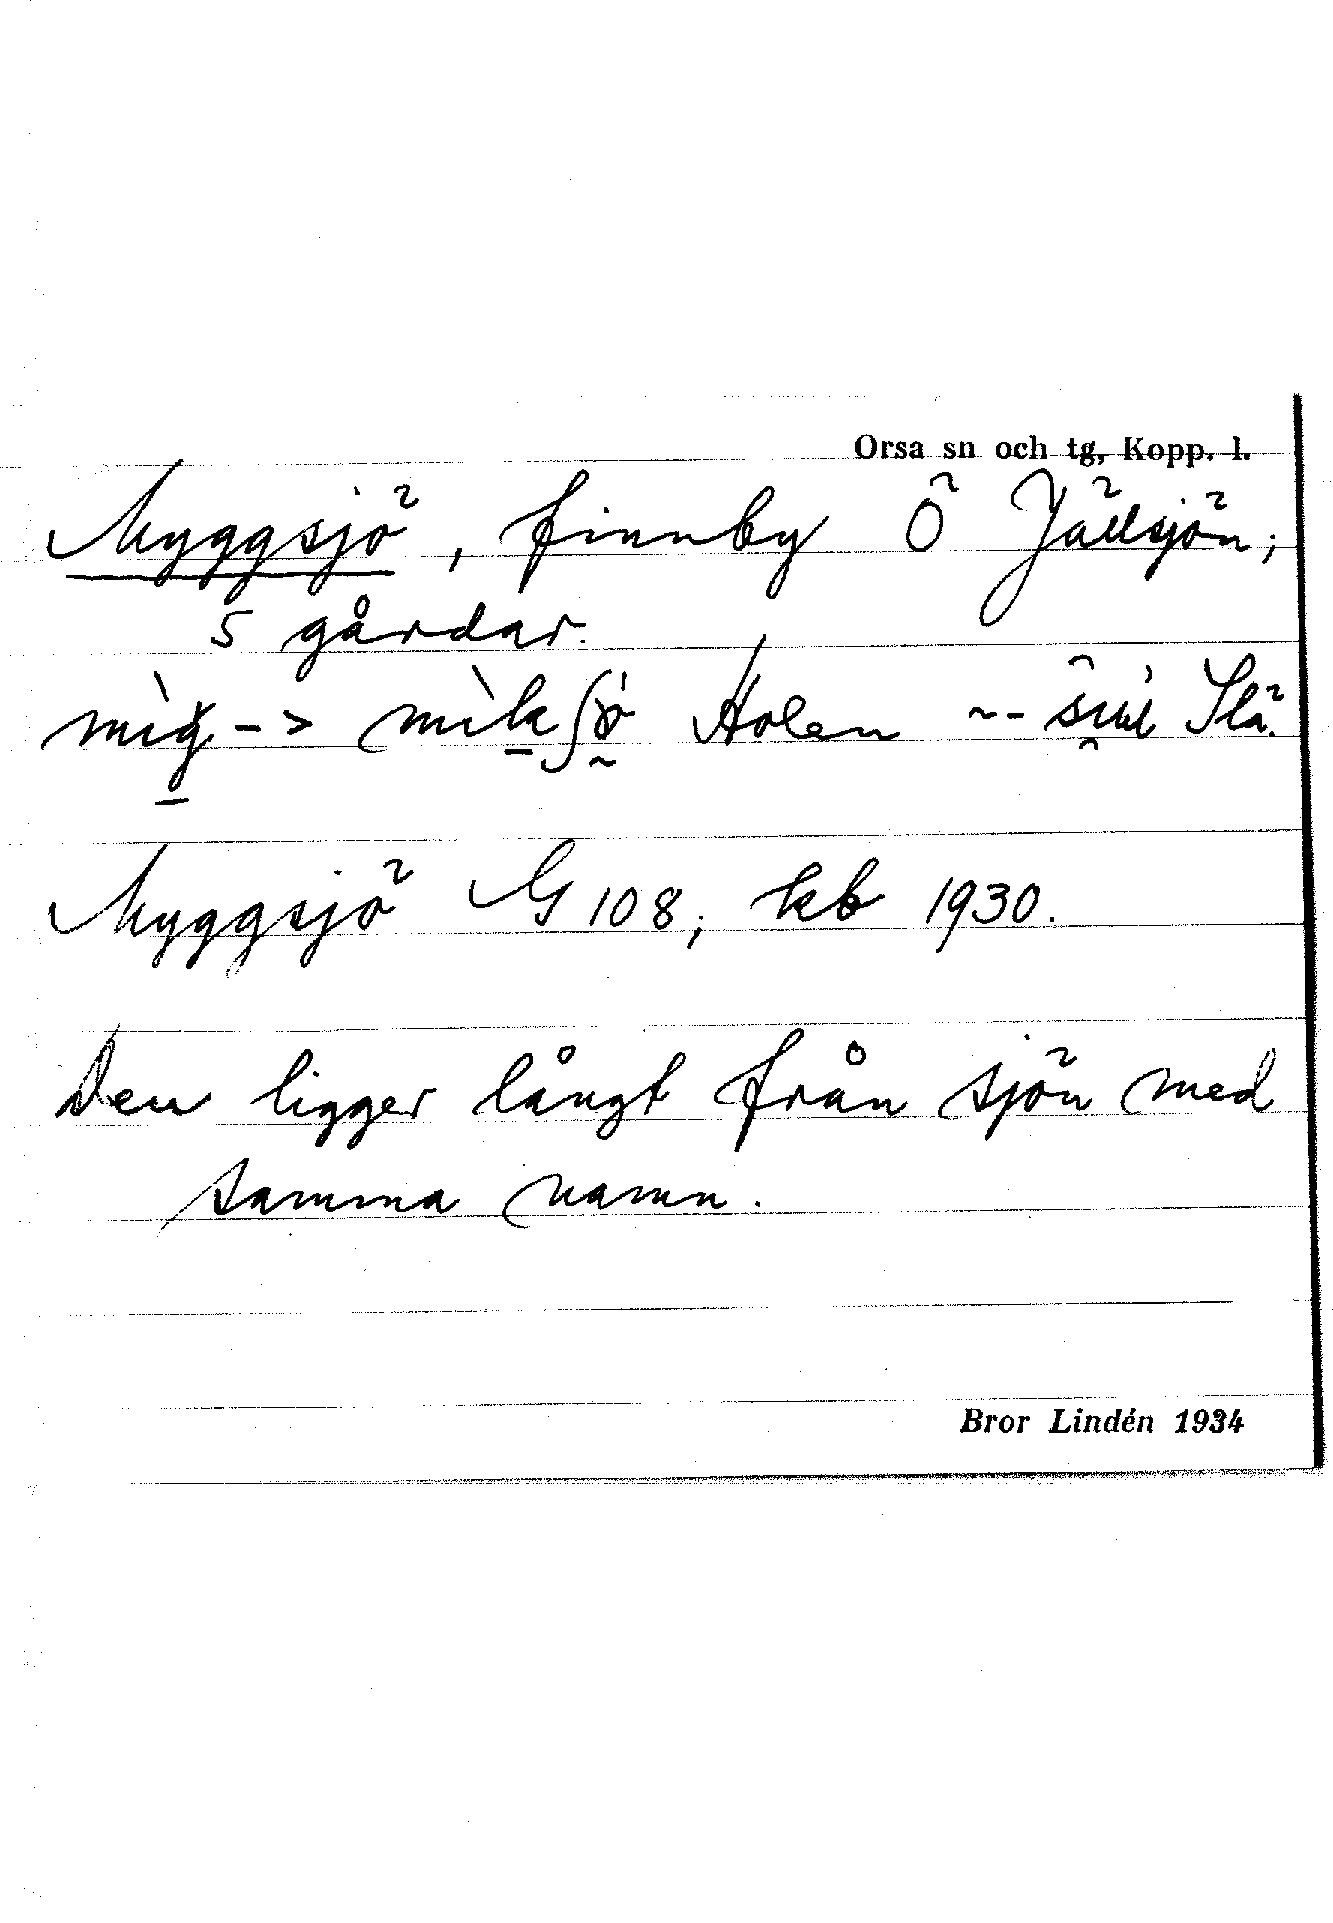 Orsa sn och tg, Kopp. l.
Myggsjö, finnby Ö Jällsjön;
5 gårdar.
Holen
Myggsjö G 108; kb 1930.
Den ligger långt från sjön med
samma namn.
Bror Lindén 1934